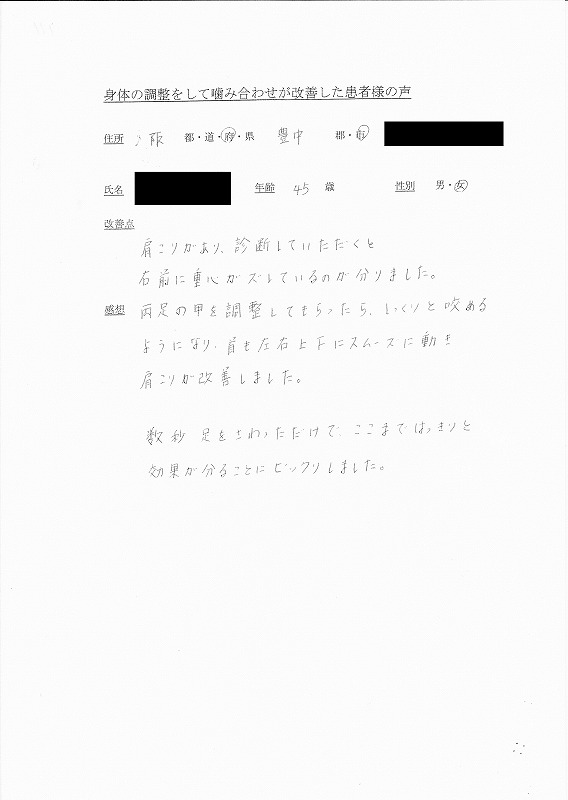 身体の調整をして噛み合わせが改善した患者様の声
住所 大阪 都・道・府・県 豊中 郡・市
氏名 年齢 45 歳 性別 男・女
改善点
肩こりがあり、診断していただくと
右前に重心がズしているのが分りました。
感想 両足の甲を調整してもらったら、しっくりと咬める
ようになり、首も左右上下にスムースに動き
肩こりが改善しました。
数秒 足をさわっただけで、ここまではっきりと
効果が分ることにビックリしました。